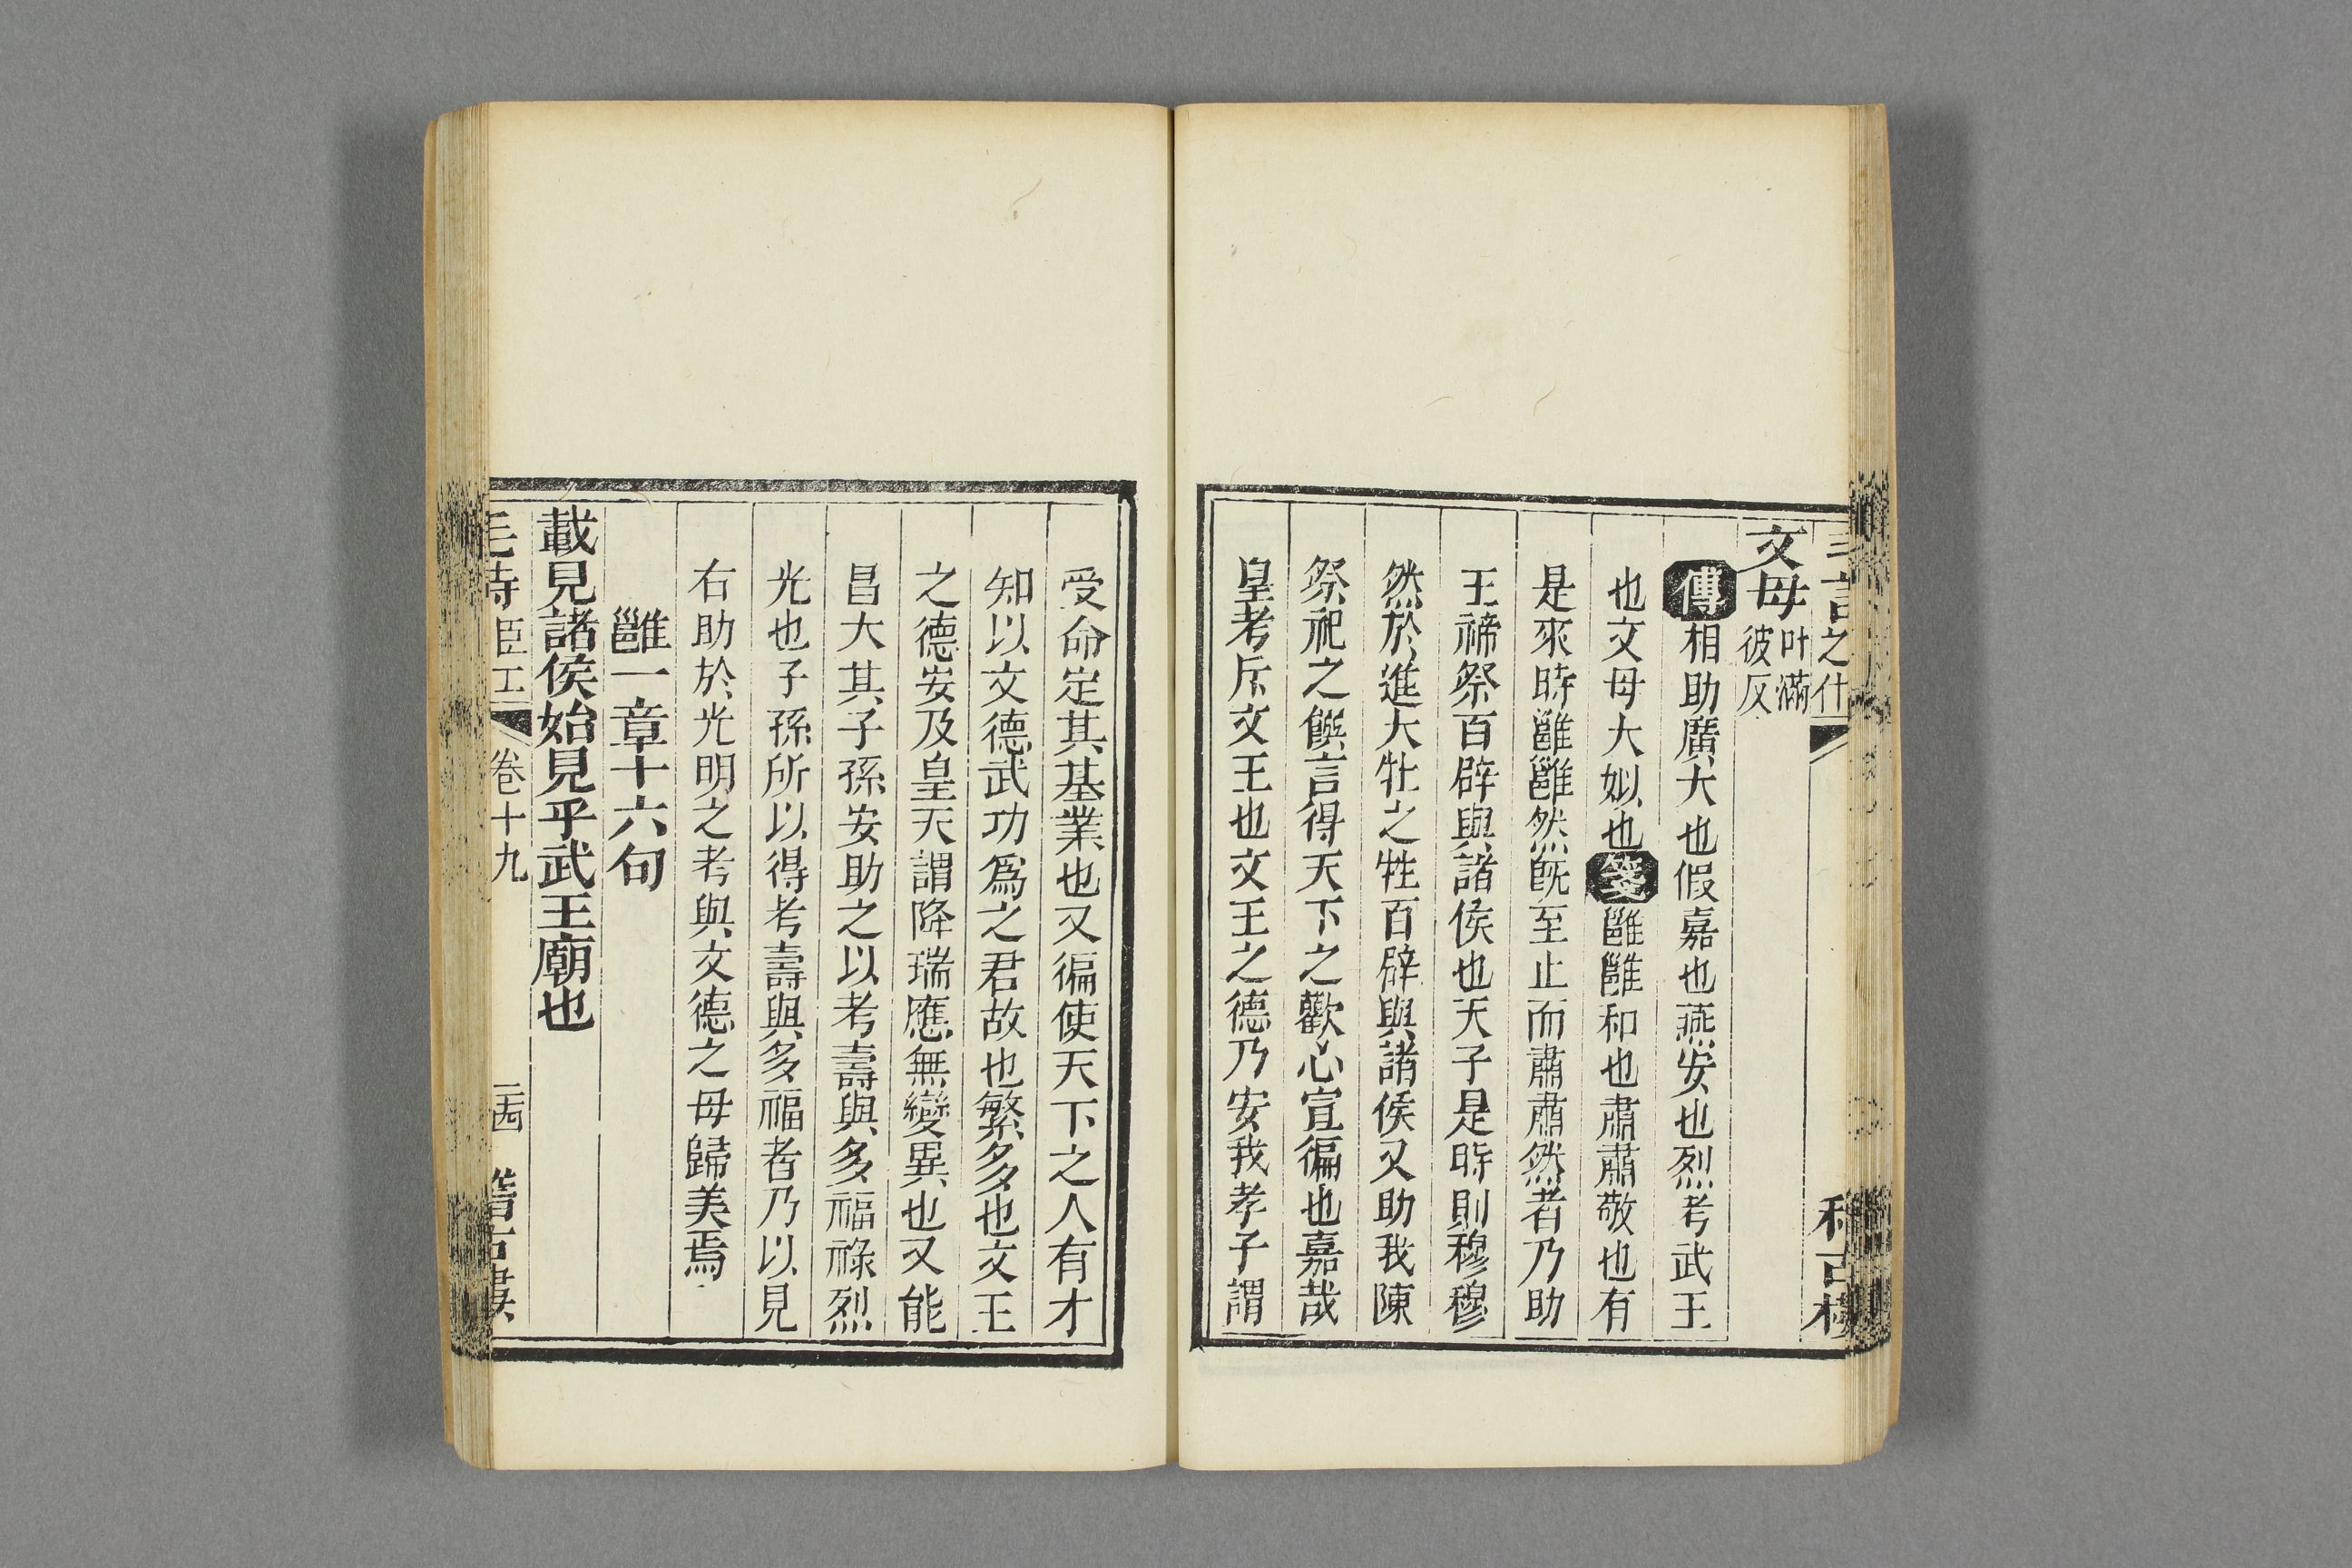 之什
文母叶滿彼反
傳相助廣大也假嘉也燕安也烈考武王
也文母大姒也箋雝雝和也肅肅敬也有
是來時雝雝然既至止而肅肅然者乃助
王禘祭百辟與諸侯也天子是時則穆穆
然於進大牡之牲百辟與諸侯又助我陳
祭祀之饌言得天下之歡心宣徧也嘉哉
皇考斥文王也文王之德乃安我孝子謂
受命定其基業也又徧使天下之人有才
知以文德武功爲之君故也繁多也文王
之德安及皇天謂降瑞應無變異也又能
昌大其子孫安助之以考壽與多福祿烈
光也子孫所以得考壽與多福者乃以見
右助於光明之考與文德之母歸美焉
雝一章十六句
載見諸侯始見乎武王廟也
毛詩臣工 卷十九